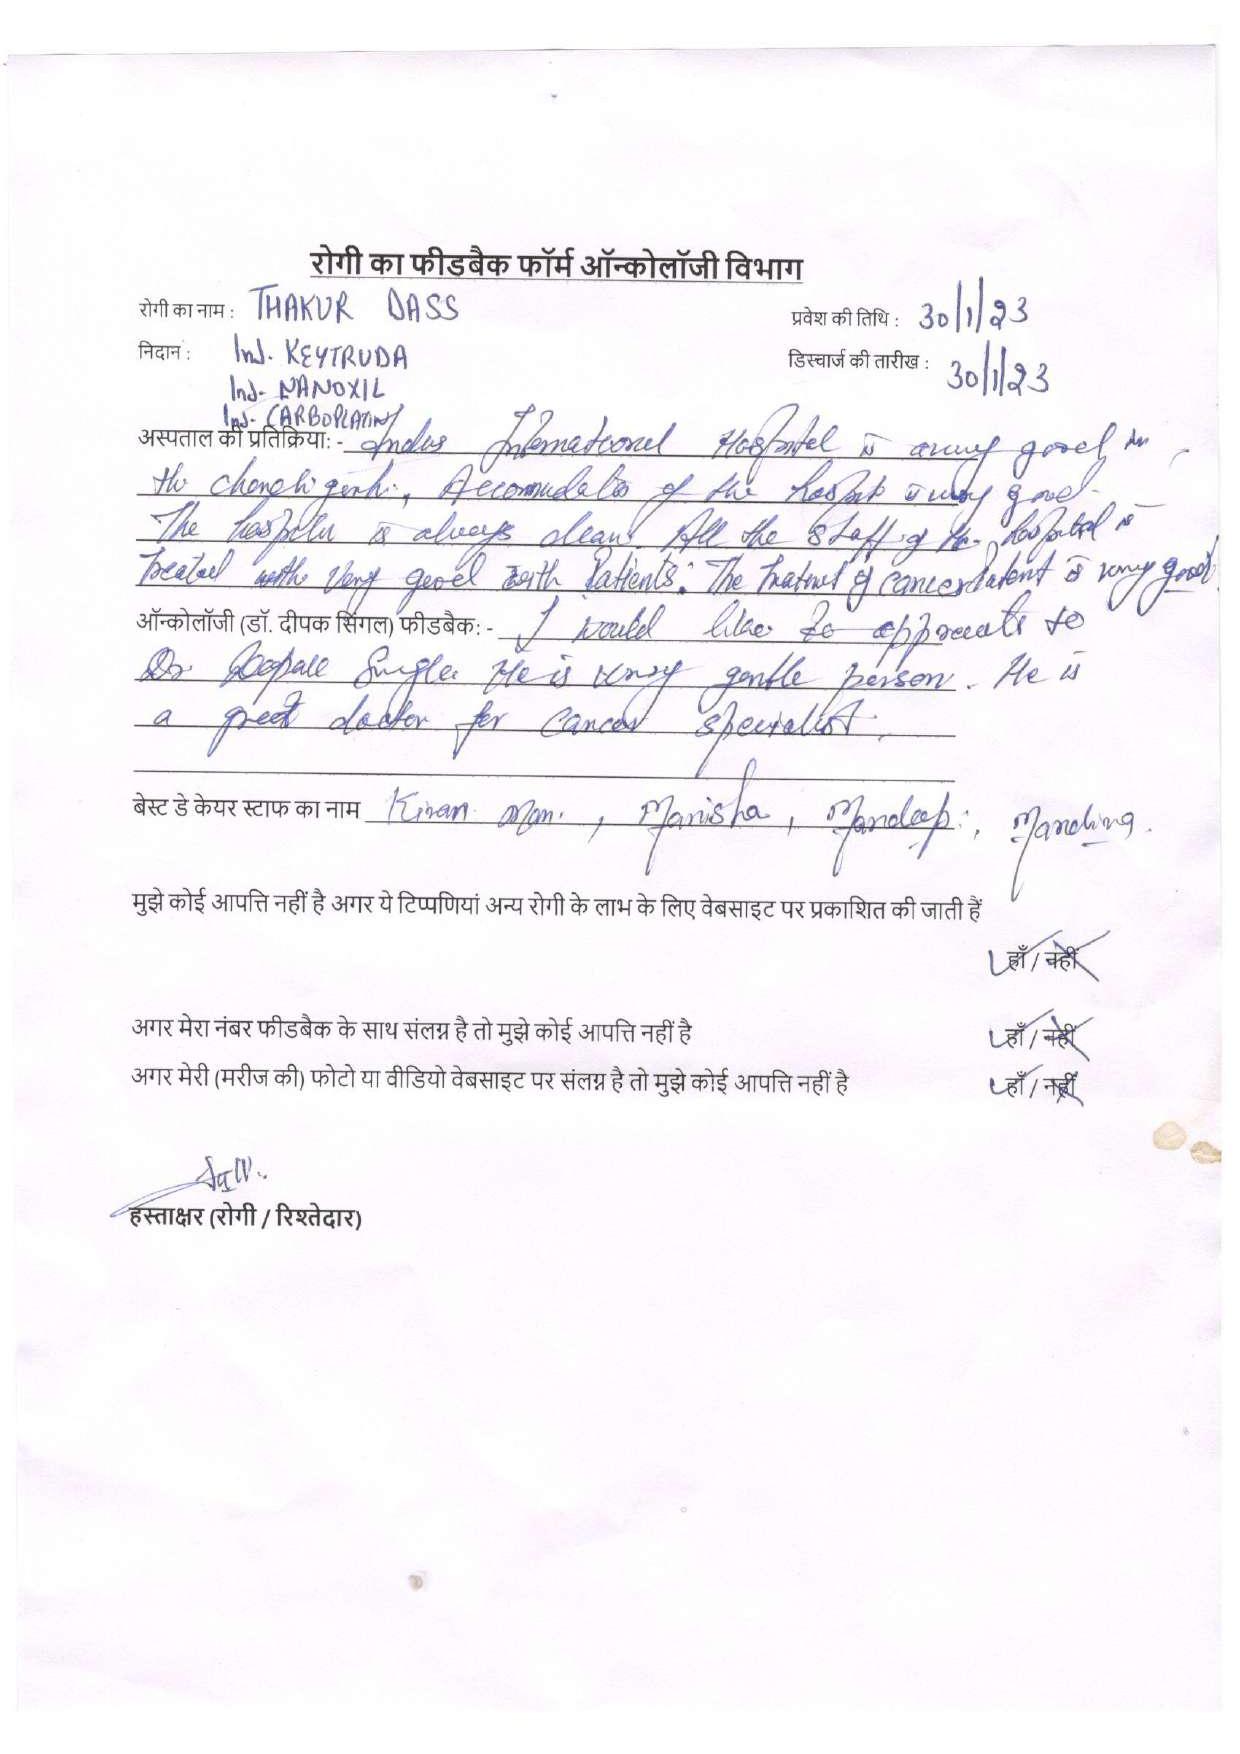 रोगी का फीडबैक फॉर्म ऑन्कोलॉजी विभाग
रोगी का नाम : THAKUR DASS
प्रवेश की तिथि : 30/1/23
निदान : Inj. KEYTRUDA
डिस्चार्ज की तारीख : 30/1/23
Inj- NANOXIL
Inj- CARBOPLATIN
अस्पताल की प्रतिक्रिया: - Indus International Hospital is good in
the , of the is very good.
The is always clean. All the Staff of the hospital is
treated with very good with Patients. The of is very good
ऑन्कोलॉजी (डॉ. दीपक सिंगल) फीडबैक: - I would like to to
Dr He is very gentle person. He is
a great doctor for cancer specialist.
बेस्ट डे केयर स्टाफ का नाम Kiran Mam. , Manisha , Mandeep ,
मुझे कोई आपत्ति नहीं है अगर ये टिप्पणियां अन्य रोगी के लाभ के लिए वेबसाइट पर प्रकाशित की जाती हैं
हाँ / नहीं
अगर मेरा नंबर फीडबैक के साथ संलग्न है तो मुझे कोई आपत्ति नहीं है हाँ / नहीं
अगर मेरी (मरीज की) फोटो या वीडियो वेबसाइट पर संलग्न है तो मुझे कोई आपत्ति नहीं है हाँ / नहीं
हस्ताक्षर (रोगी / रिश्तेदार)